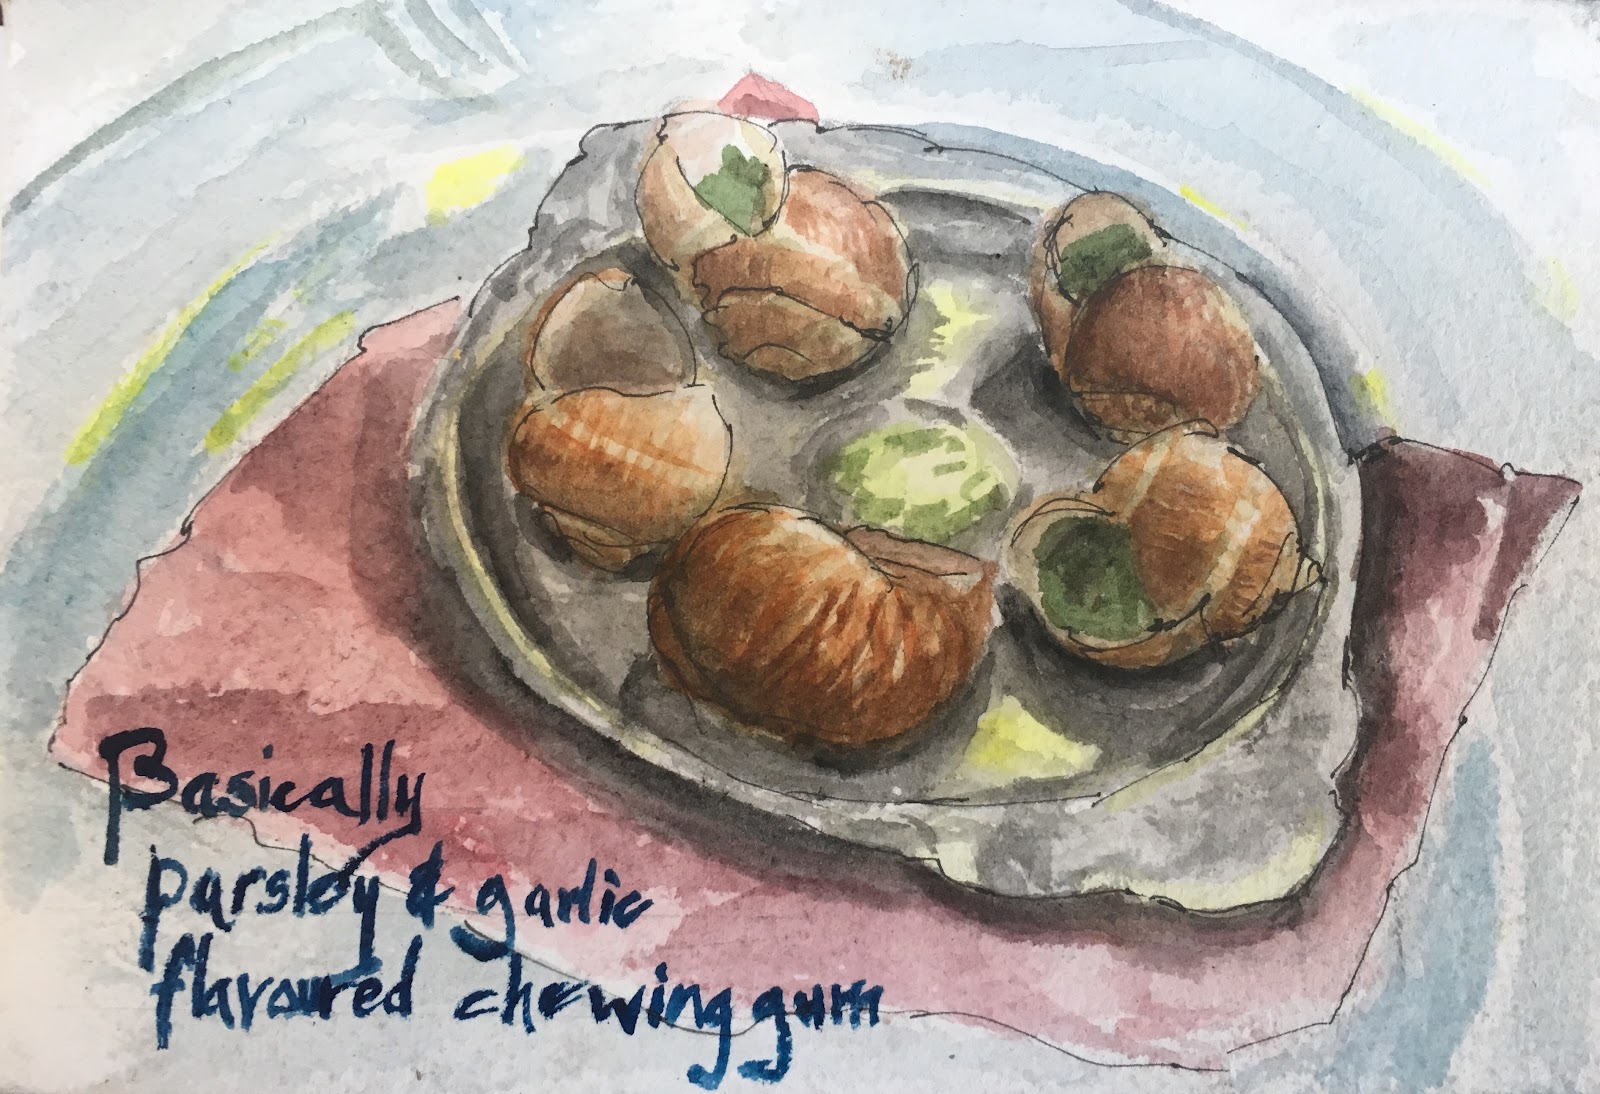 Basically
parsley & garlic
flavoured chewing gum